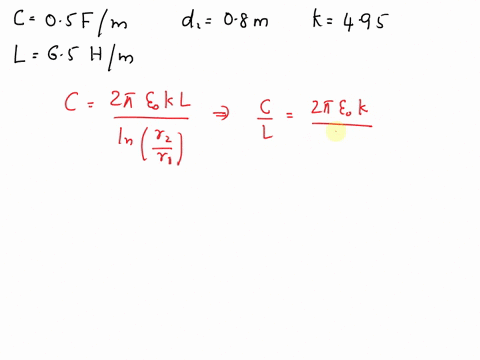 C = 0.5 F/m d₁ = 0.8 m k = 4.95
L = 6.5 H/m
C = 2π ε₀ k L / ln(r₂/r₁) ⇒ C/L = 2π ε₀ k /